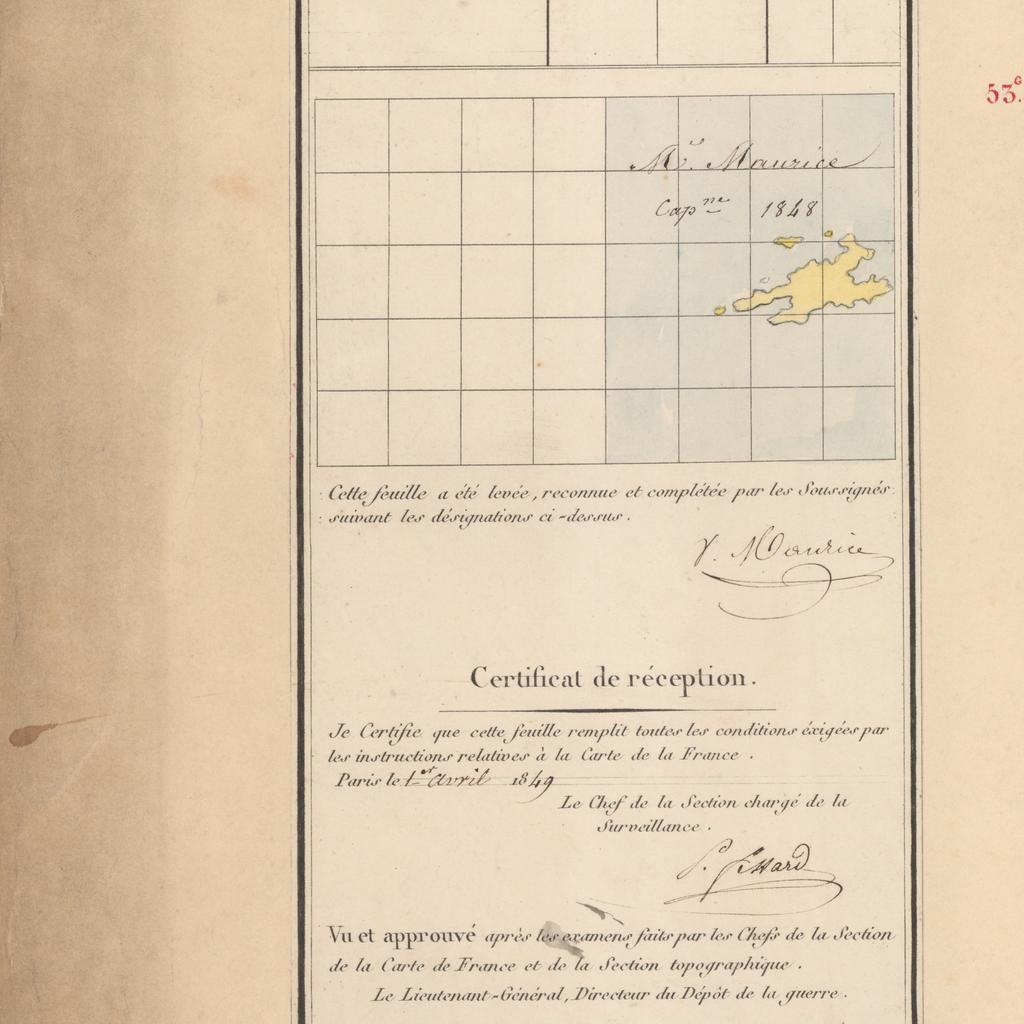 53.G
Mr. Maurice
Capne 1848
Cette feuille a été levée, reconnue et complétée par les Soussignés
suivant les désignations ci-dessus.
V. Maurice
Certificat de réception.
Je Certifie que cette feuille remplit toutes les conditions éxigées par
les instructions relatives à la Carte de la France.
Paris le 1er avril 1849
Le Chef de la Section chargé de la
Surveillance.
Vu et approuvé après les examens faits par les Chefs de la Section
de la Carte de France et de la Section topographique.
Le Lieutenant-Général, Directeur du Dépôt de la guerre.